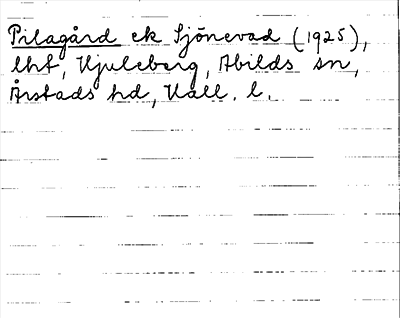 Pilagård ek Sjönevad (1925),
lht, Hjuleberg, Abilds sn,
Årstads hd, Hall. l.